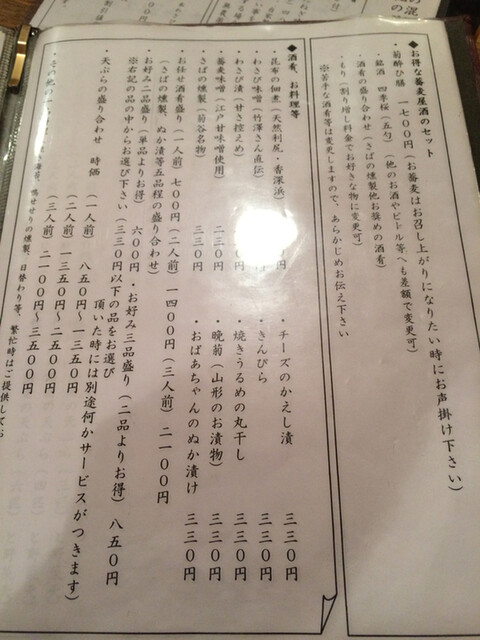 ◆お得な蕎麦屋酒のセット
・菊酔ひ膳　一七〇〇円（お蕎麦はお召し上がりになりたい時にお声掛け下さい）
・銘酒　四季桜（五勺）（他のお酒やビトル等へも差額で変更可）
・酒肴の盛り合わせ（さばの燻製他お奨めの酒肴）
・もり（割り増し料金でお好きな物に変更可）
※苦手な酒肴等は変更しますので、あらかじめお伝え下さい
◆酒肴、お料理等
・昆布の佃煮（天然利尻・香深浜）　円
・チーズのかえし漬　三三〇円
・わさび味噌（竹澤さん直伝）　円
・きんぴら　三三〇円
・わさび漬（甘さ控えめ）　〇円
・焼きうるめの丸干し　三三〇円
・蕎麦味噌（江戸甘味噌使用）　二三〇円
・晩菊（山形のお漬物）　三三〇円
・さばの燻製（菊谷名物）　三三〇円
・おばあちゃんのぬか漬け　三三〇円
・お任せ酒肴盛り（一人前）七〇〇円（二人前）一四〇〇円（三人前）二一〇〇円
（さばの燻製、ぬか漬等五品程の盛り合わせ）
・お好み二品盛り（単品よりお得）　六〇〇円　・お好み三品盛り（二品よりお得）　八五〇円
※右記の品の中からお選び下さい（三三〇円以下の品をお選び
頂いた時には別途何かサービスがつきます）
・天ぷらの盛り合わせ　時価　（一人前）　八五〇円〜一三五〇円
（二人前）一三五〇円〜二五〇〇円
（三人前）二一〇〇円〜三五〇〇円
・その他
鴨せせりの燻製、日替わり等、繁忙時はご提供してお